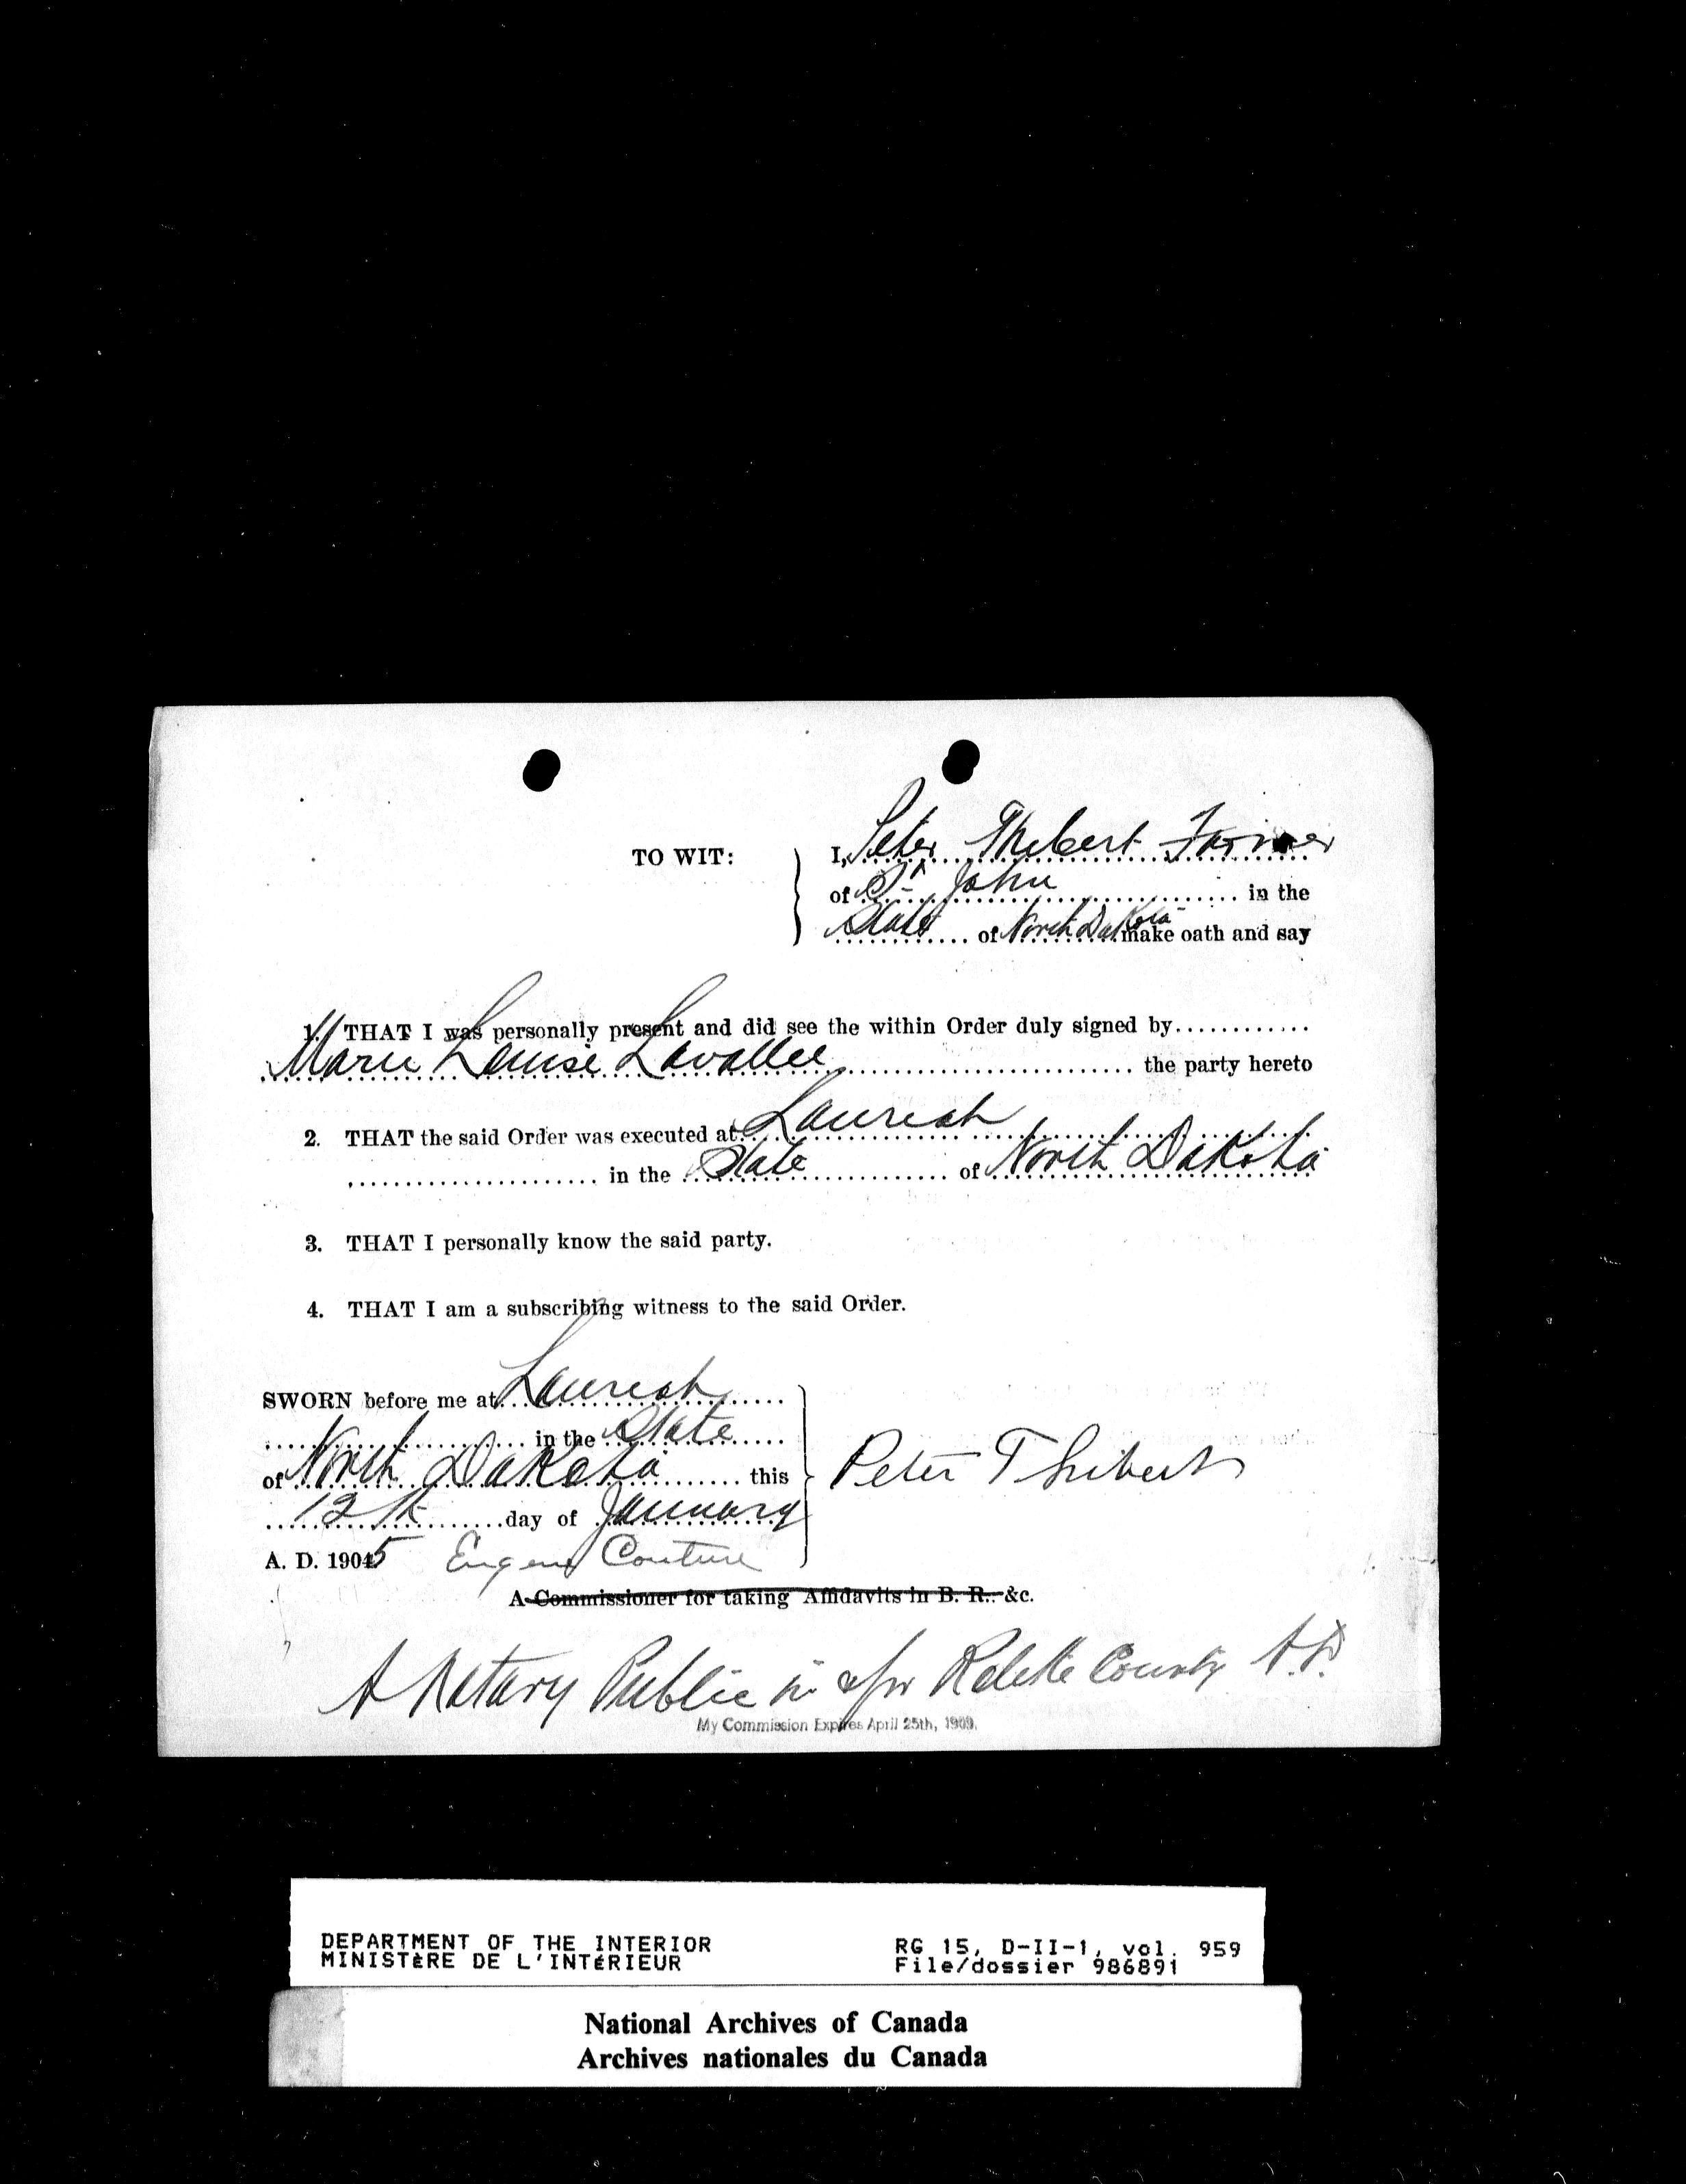 TO WIT: I, Peter Thibert Farmer
of St. John in the
State of North Dakota make oath and say
1. THAT I was personally present and did see the within Order duly signed by
Marie Louise Lavallee the party hereto
2. THAT the said Order was executed at Laureat
in the State of North Dakota
3. THAT I personally know the said party.
4. THAT I am a subscribing witness to the said Order.
SWORN before me at Laureat
in the State
of North Dakota this
12th day of January
Peter Thibert
A. D. 1905 Eugene Couture
A Commissioner for taking Affidavits in B. R.. &c.
A Notary Public in & for Rolette County N.D.
My Commission Expires April 25th, 1909.
DEPARTMENT OF THE INTERIOR RG 15, D-II-1, vol. 959
MINISTÈRE DE L'INTÉRIEUR File/dossier 986891
National Archives of Canada
Archives nationales du Canada